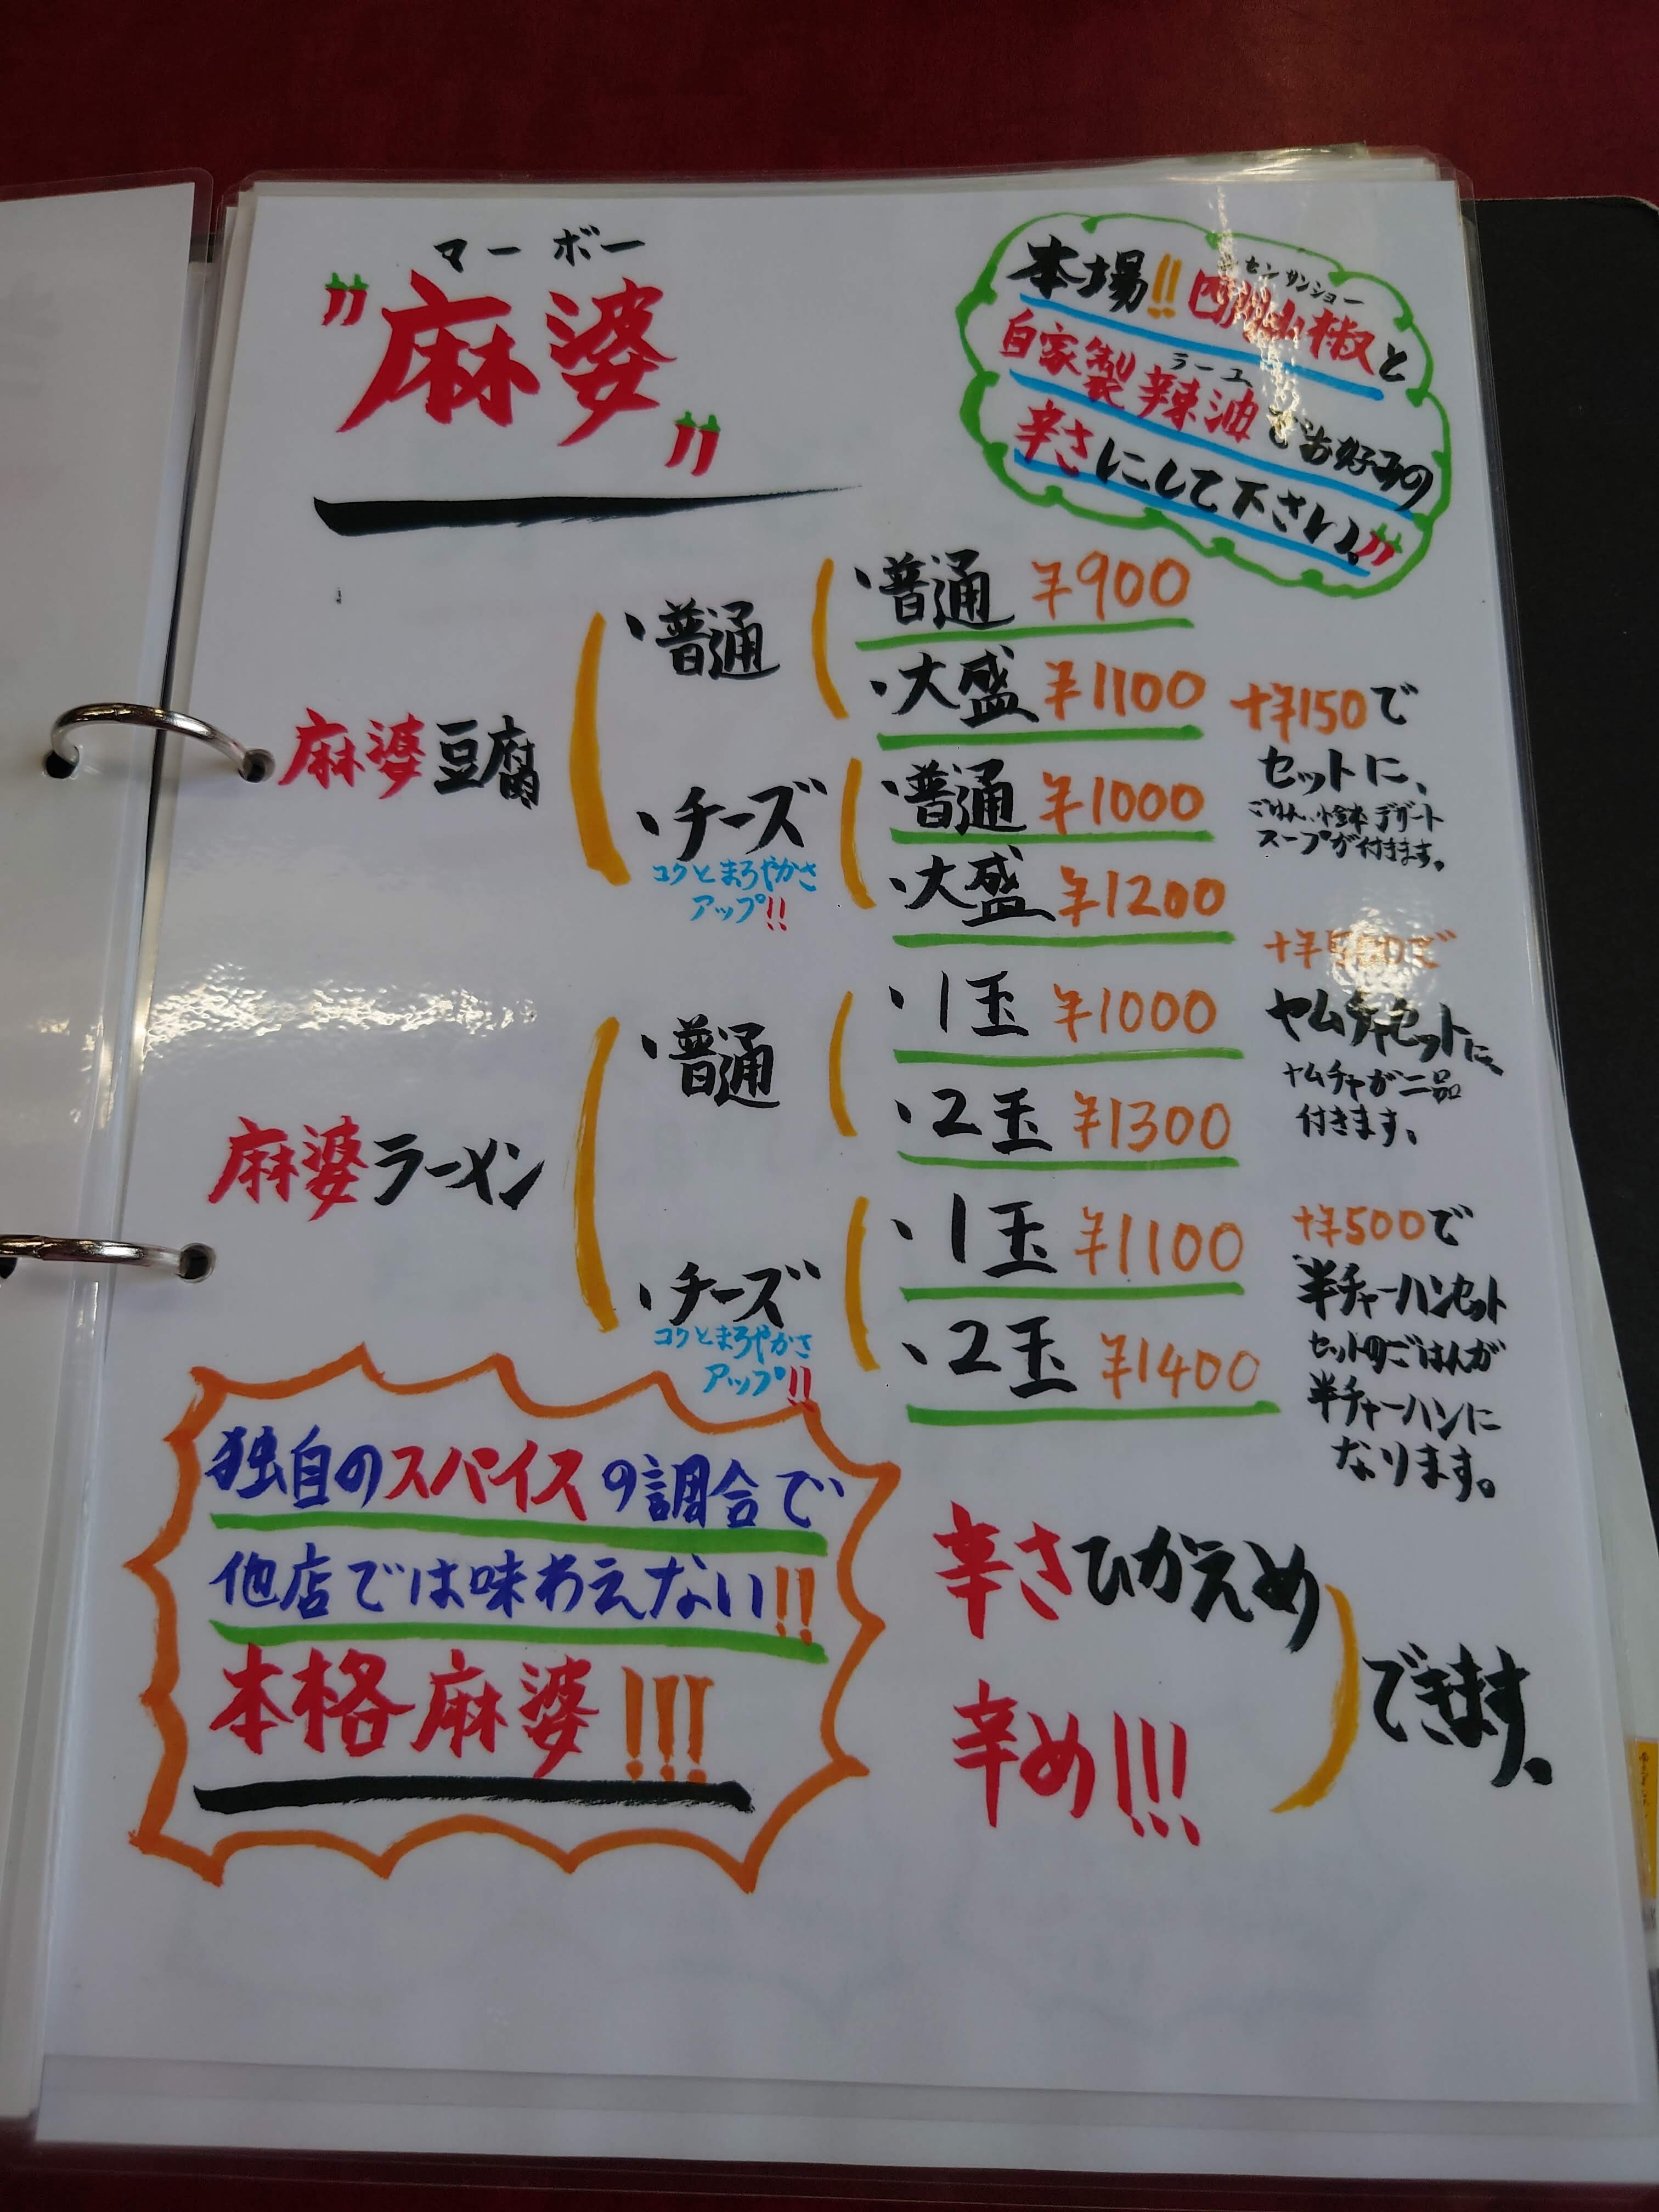 マーボー
麻婆
本場!!四川山椒と
センサンショー
自家製辣油でお好みの
ラーユ
辛さにして下さい。
麻婆豆腐
・普通
・普通 ¥900
・大盛 ¥1100
・チーズ
コクとまろやかさ
アップ!!
・普通 ¥1000
・大盛 ¥1200
麻婆ラーメン
・普通
・1玉 ¥1000
・2玉 ¥1300
・チーズ
コクとまろやかさ
アップ!!
・1玉 ¥1100
・2玉 ¥1400
+¥150で
セットに、
ごはん、小鉢、デザート
スープが付きます。
ヤムチャセットに、
ヤムチャが二品
付きます。
+¥500で
半チャーハンセット
セットのごはんが
半チャーハンに
なります。
独自のスパイスの調合で
他店では味わえない!!
本格麻婆!!!
辛さひかえめ
辛め!!!
できます。